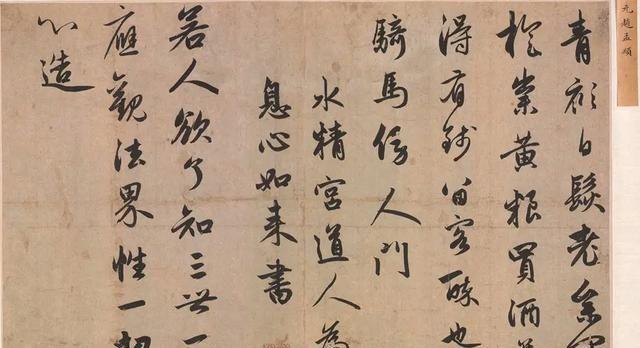 元趙孟頫
青衫白髮老參
旋糶黃粮買酒
得有錢留客醉也
騎馬傍人門
水精宮道人為
息心如来書
若人欲了知三世一
應觀法界性一切
心造